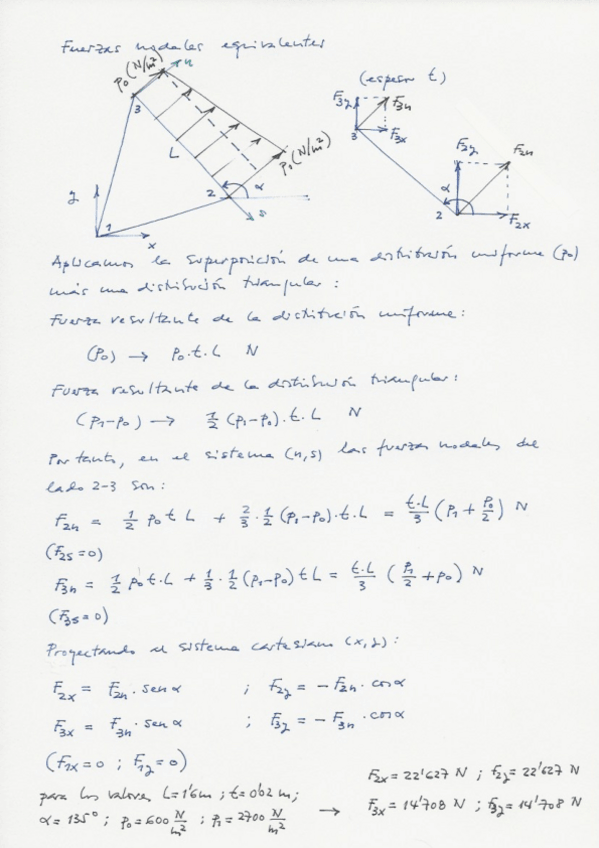 Fuerzas nodales equivalentes
p₀(N/m²)
n
3
L
p₁(N/m²)
2
α
s
y
1
x
(espesor t)
F3y
F3n
3
F3x
F2y
F2n
α
2
F2x
Aplicamos la superposición de una distribución uniforme (p₀)
más una distribución triangular :
Fuerza resultante de la distribución uniforme:
(p₀) → p₀·t·L N
Fuerza resultante de la distribución triangular:
(p₁-p₀) → 1/2 (p₁-p₀)·t·L N
Por tanto, en el sistema (n,s) las fuerzas nodales del
lado 2-3 son:
F2n = 1/2 p₀ t L + 2/3 · 1/2 (p₁-p₀)·t·L = t·L/3 (p₁ + p₀/2) N
(F2s=0)
F3n = 1/2 p₀ t·L + 1/3 · 1/2 (p₁-p₀) t L = t·L/3 (p₁/2 + p₀) N
(F3s=0)
Proyectando al sistema cartesiano (x,y):
F2x = F2n · sen α ; F2y = - F2n · cos α
F3x = F3n · sen α ; F3y = - F3n · cos α
(F1x=0 ; F1y=0)
para los valores L=1'6m ; t=0'02 m;
α=135° ; p₀=600 N/m² ; p₁=2700 N/m² →
F2x = 22'627 N ; F2y = 22'627 N
F3x = 14'708 N ; F3y = 14'708 N